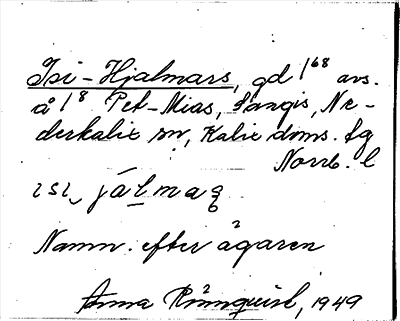 Isi-Hjalmars, gd 1⁶⁸ avs.
å 1⁸ Pet-Mias, Sangis, Ne-
derkalix sn, Kalix doms. tg
Norrb. l
ısı, jálmaq
Namn. efter ägaren
Anna Rönnquist, 1949